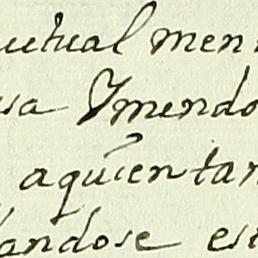 utual men
sa Ymendo
aquien tan
andose es